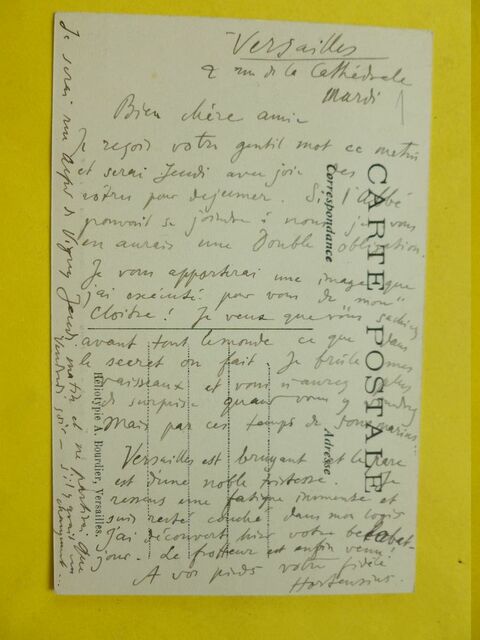 Versailles
2 rue de la Cathédrale
Mardi
Bien chère amie
Je reçois votre gentil mot ce matin
et serai Jeudi avec joie des
vôtres pour dejeuner. Si l'abbé
pouvait se joindre à nous je vous
en aurais une Double obligation.
Je vous apporterai une image que
j'ai exécuté pour vous de mon
Cloître! Je veux que vous sachiez
avant tout le monde ce que dans
le secret on fait. Je brûle mes
vaisseaux et vous n'aurez plus
de surprise quand vous y
Mais par ces temps de sous marins!
Versailles est bruyant et le
est d'une noble tristesse. Je
ressens une fatigue immense et
suis resté couché dans mon logis
j'ai découvert hier votre bel abat-
jour. Le frotteur est enfin venu!
A vos pieds votre fidèle
Hortensius.
Je serai rue de Vigny Jeudi matin et ne partirai que
Vendredi soir - s'il y avait un
changement..
CARTE POSTALE
Correspondance
Adresse
Héliotypie A. Bourdier, Versailles.